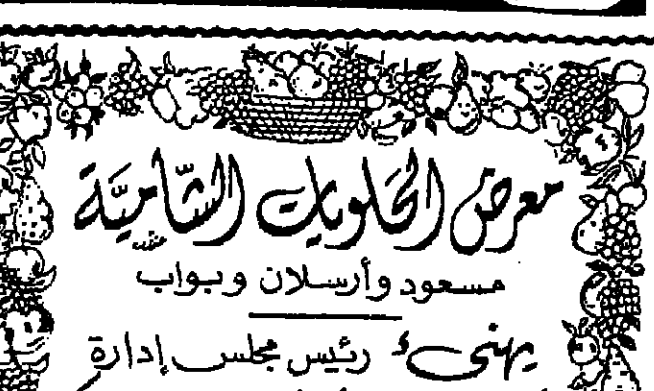 معرض الحلويات الشاميَّة
مسعود وأرسلان وبواب
يهنئ رئيس مجلس إدارة